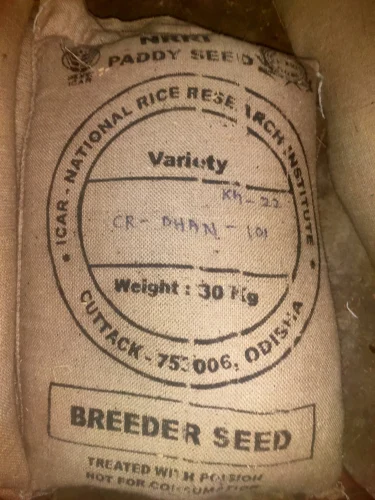 NRRI
PADDY SEED
ICAR - NATIONAL RICE RESEARCH INSTITUTE
Variety
KH-22
CR-DHAN-101
Weight : 30 Kg
CUTTACK - 753006, ODISHA
BREEDER SEED
TREATED WITH POISION
NOT FOR CONSUMATION